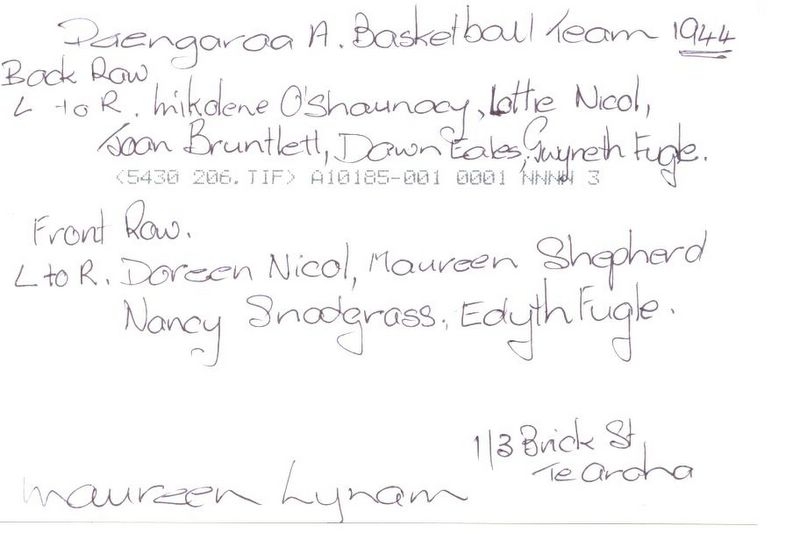 Paengaroa A. Basketball Team 1944
Back Row
L to R. Mikolene O'Shaunacy, Lottie Nicol,
Joan Bruntlett, Dawn Eales, Gwyneth Fugle.
<5430 206.TIF> A10185-001 0001 NNNN 3
Front Row.
L to R. Doreen Nicol, Maureen Shepherd
Nancy Snodgrass, Edyth Fugle.
1/3 Brick St
Te Aroha
Maureen Lynam